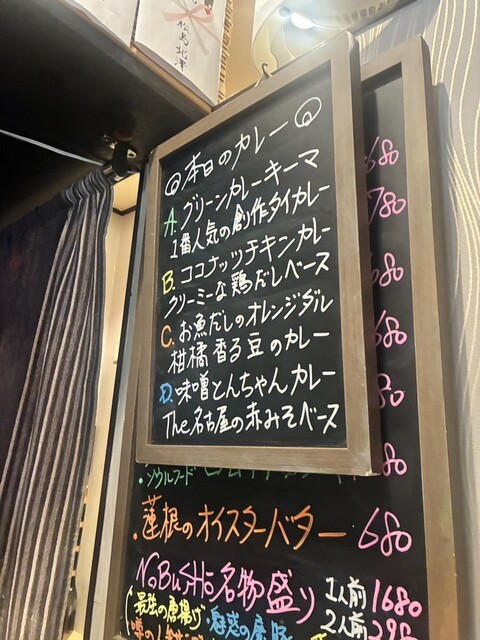 本日のカレー
A. グリーンカレーキーマ
1番人気の創作タイカレー
B. ココナッツチキンカレー
クリーミーな鶏だしベース
C. お魚だしのオレンジダル
柑橘香る豆のカレー
D. 味噌とんちゃんカレー
The名古屋の赤みそベース
680
780
680
680
80
80
・ソウルフード
・蓮根のオイスターバター 680
NoBuSHi名物盛り 1人前 1680
最強の唐揚げ 2人前